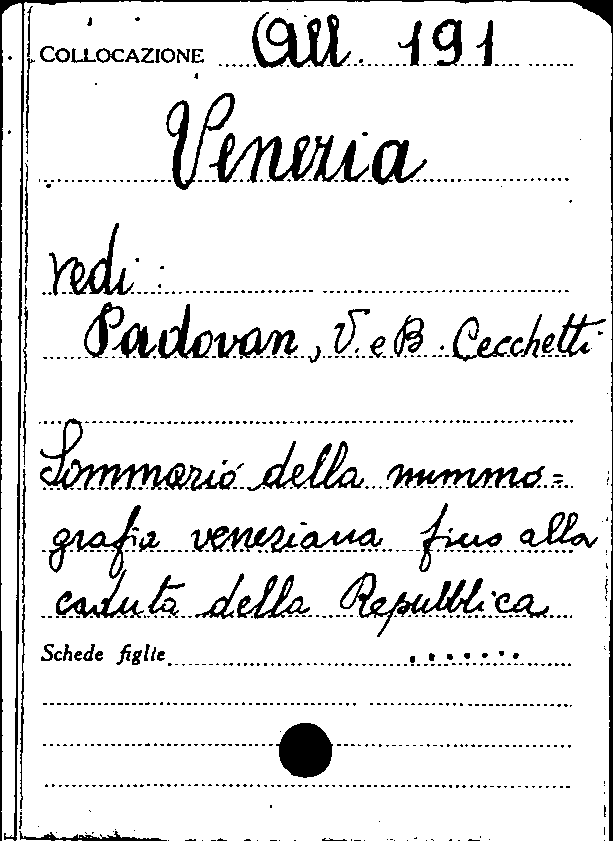 COLLOCAZIONE All. 191
Venezia
vedi:
Padovan, V. e B. Cecchetti
Sommario della nummo=
grafia veneziana fino alla
caduta della Repubblica
Schede figlie .......